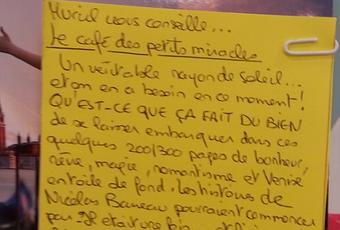 Muriel vous conseille...
Le café des petits miracles
Un véritable rayon de soleil...
et on en a besoin en ce moment!
QU'EST-CE QUE ÇA FAIT DU BIEN
de se laisser embarquer dans ces
quelques 200/300 pages de bonheur,
rêve, magie, romantisme et Venise
en toile de fond. Les histoires de
Nicolas Barreau pourraient commencer
par "Il était une fois